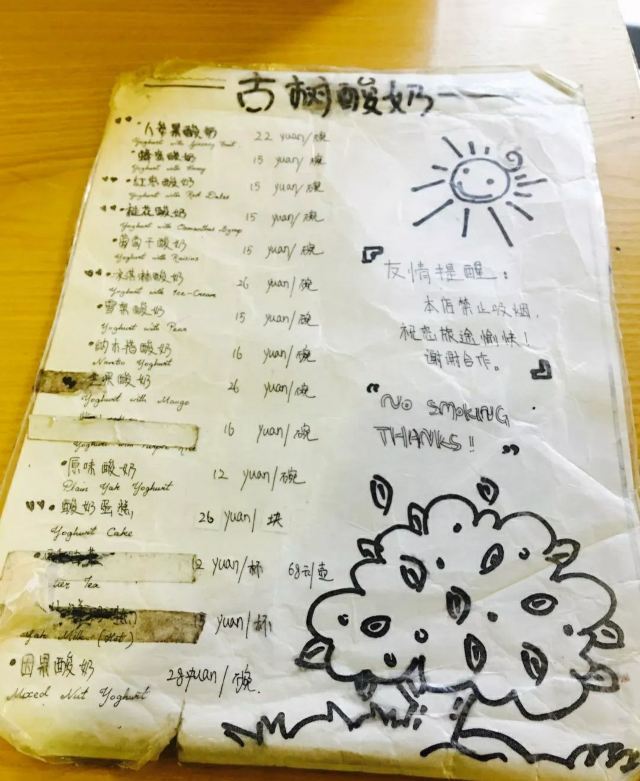 古树酸奶
人参果酸奶 22 yuan/碗
Yoghurt with Ginseng Fruit
蜂蜜酸奶 15 yuan/碗
Yoghurt with Honey
红枣酸奶 15 yuan/碗
Yoghurt with Red Dates
桂花酸奶 15 yuan/碗
Yoghurt with Osmanthus Syrup
葡萄干酸奶 15 yuan/碗
Yoghurt with Raisins
冰淇淋酸奶 26 yuan/碗
Yoghurt with Ice-Cream
雪梨酸奶 15 yuan/碗
Yoghurt with Pear
纳木措酸奶 16 yuan/碗
Namtso Yoghurt
芒果酸奶 26 yuan/碗
Yoghurt with Mango
16 yuan/碗
Yoghurt with
原味酸奶 12 yuan/碗
Plain Yak Yoghurt
酸奶蛋糕 26 yuan/块
Yoghurt Cake
2 yuan/杯 68元/壶
Tea
yuan/杯
Yak Milk (Hot)
因果酸奶 28yuan/碗
Mixed Nut Yoghurt
友情提醒:
本店禁止吸烟,
祝您旅途愉快!
谢谢合作。
"NO SMOKING
THANKS!!"